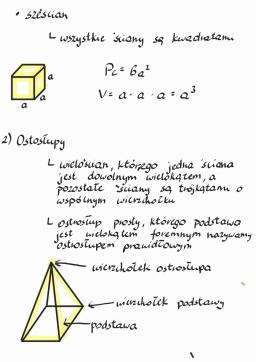 • sześcian
↳ wszystkie ściany są kwadratami
Pc = 6a²
V = a · a · a = a³
a
a
a
2) Ostrosłupy
↳ wielościan, którego jedna ściana
jest dowolnym wielokątem, a
pozostałe ściany są trójkątami o
wspólnym wierzchołku
↳ ostrosłup prosty, którego podstawa
jest wielokątem foremnym nazywamy
ostrosłupem prawidłowym
wierzchołek ostrosłupa
wierzchołek podstawy
podstawa